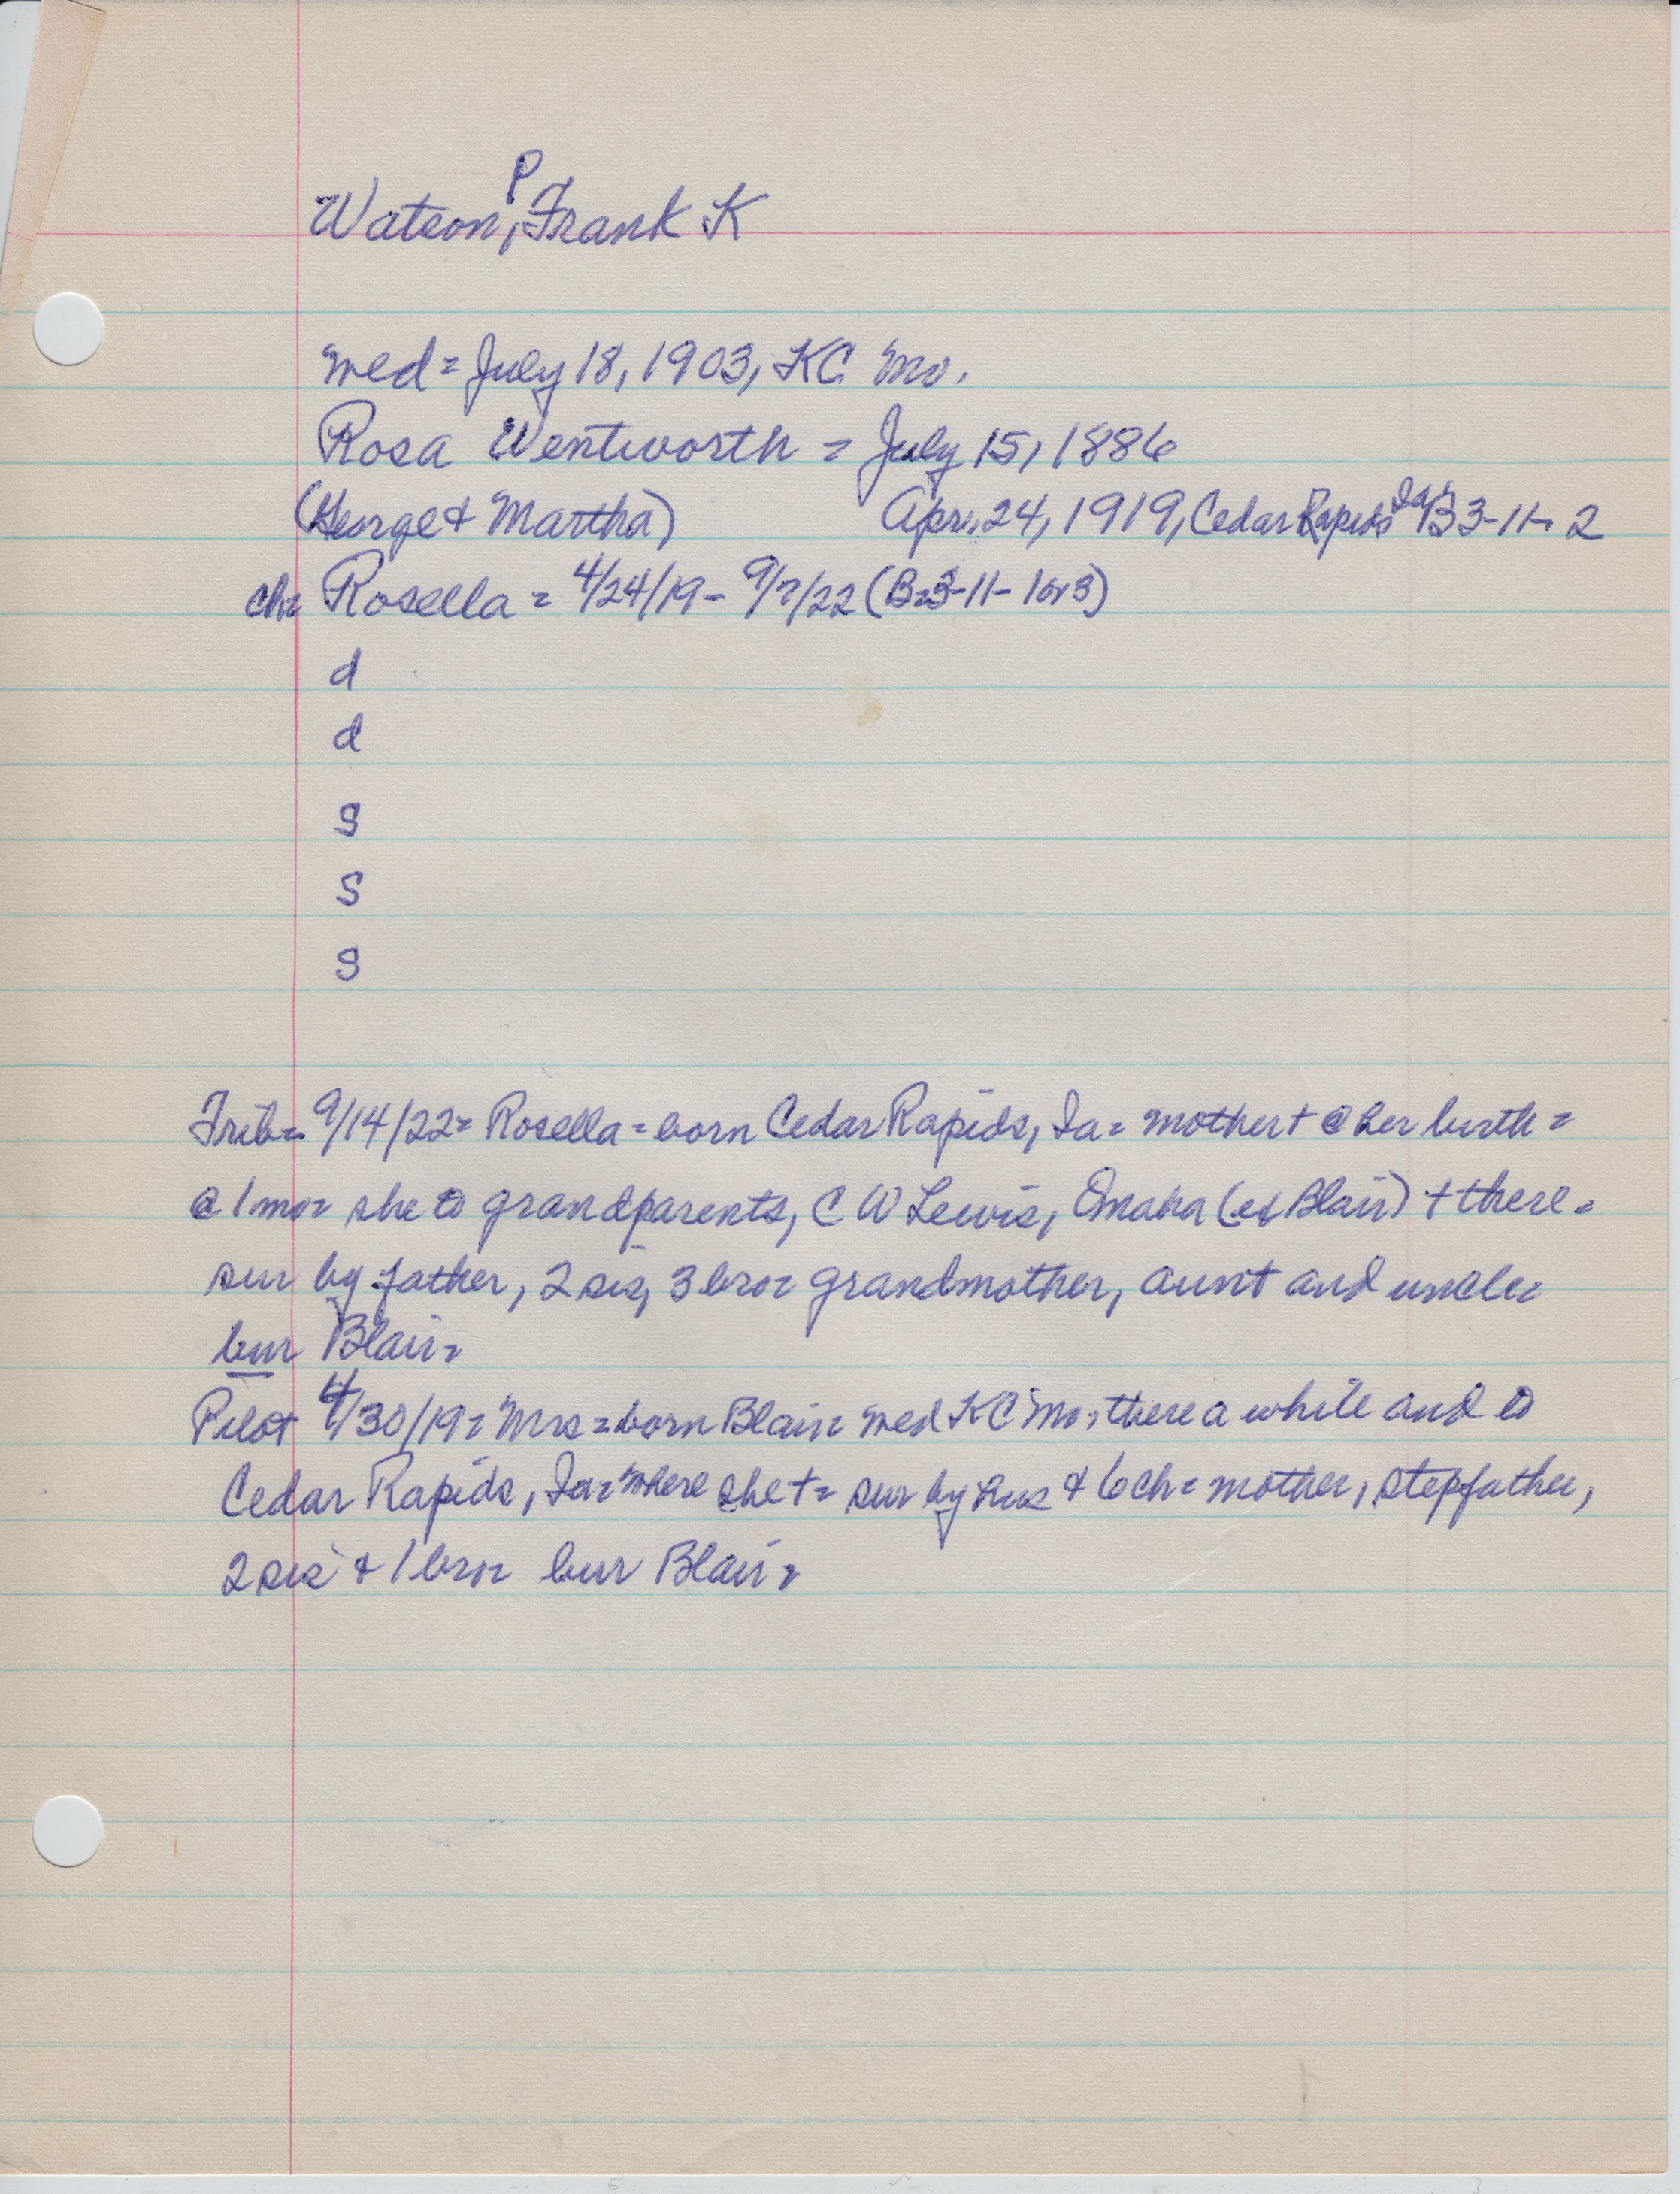 P
Watson, Frank K
wed = July 18, 1903, KC Mo.
Rosa Wentworth = July 15, 1886
(George & Martha) Apr. 24, 1919, Cedar Rapids Ia, B3-11-2
ch= Rosella = 4/24/19 - 9/7/22 (B=3-11-1or3)
d
d
S
S
S
Trib= 9/14/22= Rosella = born Cedar Rapids, Ia = mother + @ her birth =
@ 1 mo= she to grandparents, C W Lewis, Omaha (ex Blair) + there =
sur by father, 2 sis, 3 bro= grandmother, aunt and uncle=
bur Blair=
Pilot 4/30/19= Mrs = born Blair= wed KC Mo, there a while and to
Cedar Rapids, Ia= where she += sur by hus & 6 ch= mother, stepfather,
2 sis & 1 bro= bur Blair=